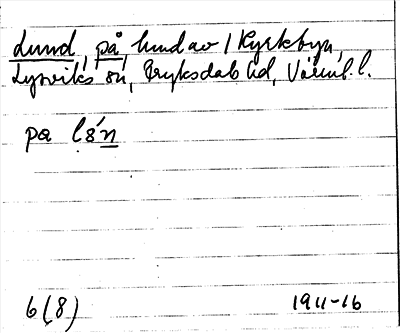 Lund, på, hmd av / Kyrkbyn,
Lysviks sn, Fryksdals hd, Värml. l.
pa
6(8) 1911-16